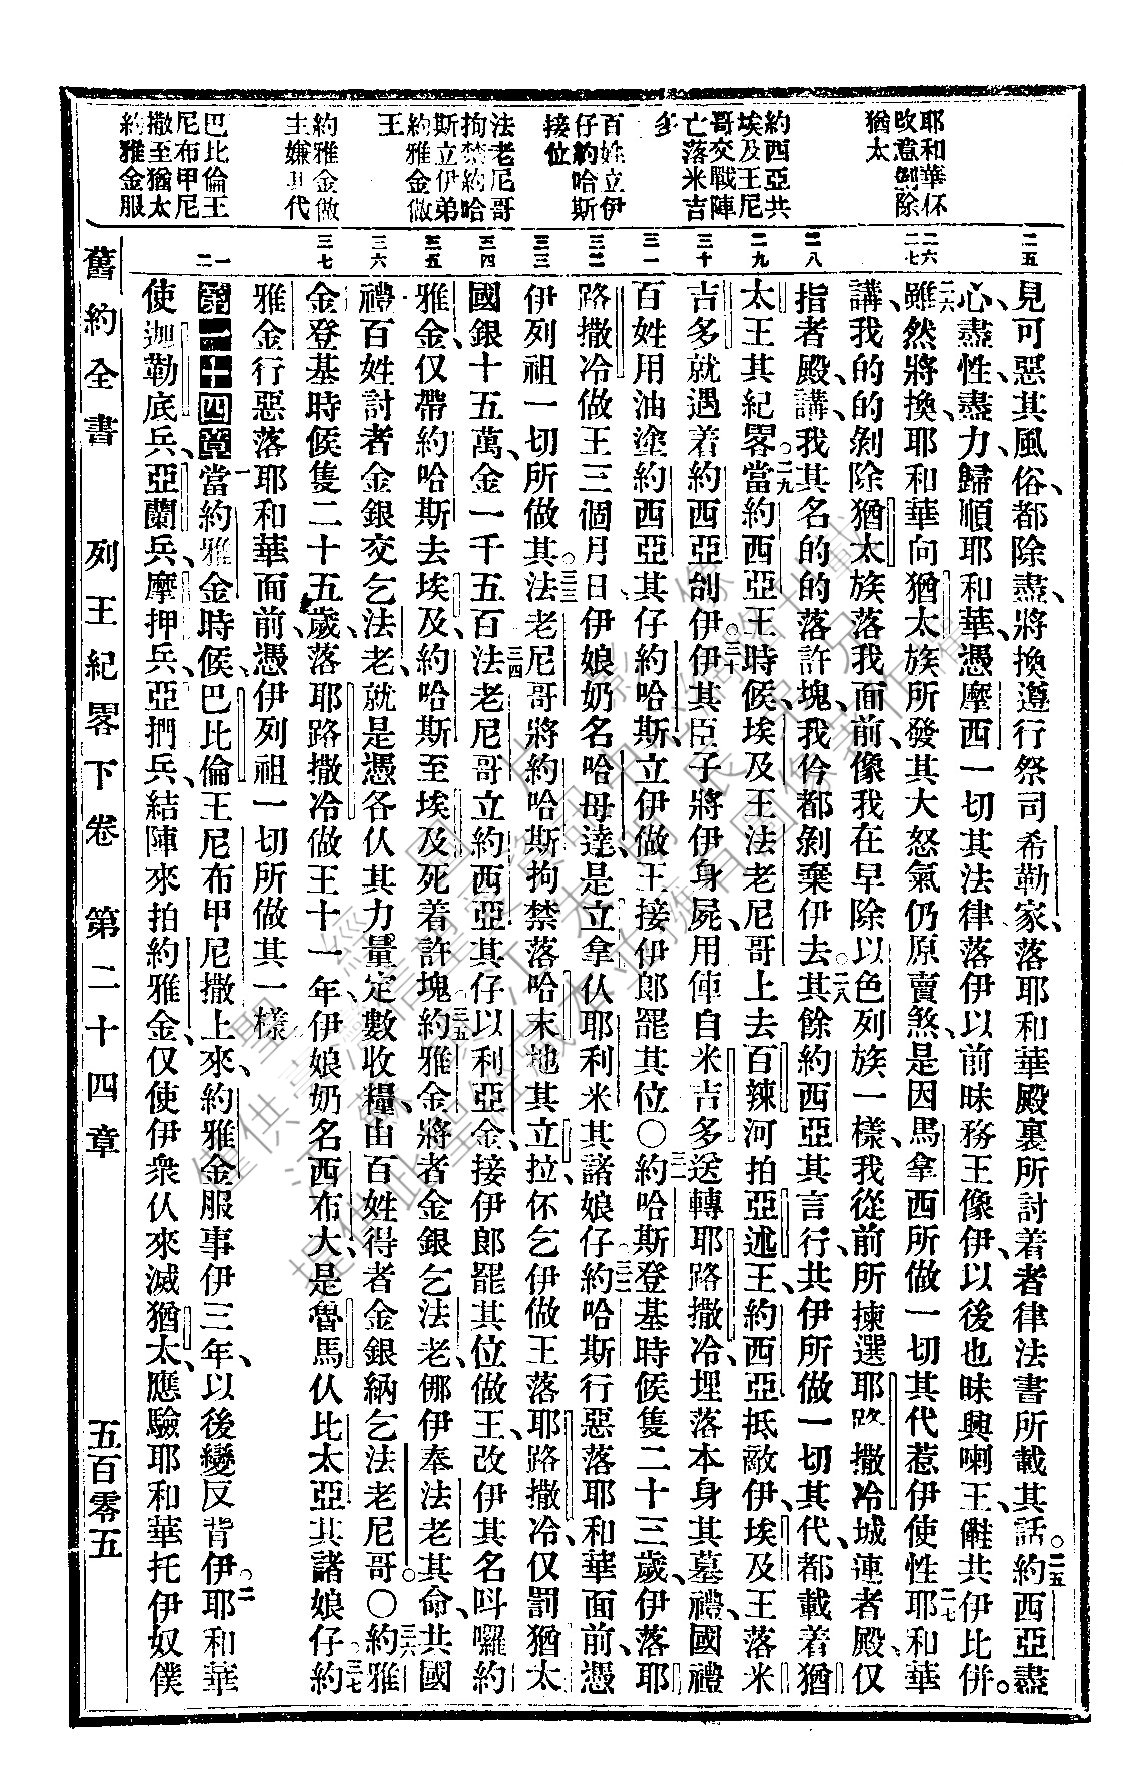 耶和華伓
改意剝除
猶太
約西亞共
埃及王尼
哥交戰陣
亡落米吉
多
百姓立伊
仔約哈斯
接位
法老尼哥
拘禁約哈
斯立伊弟
約雅金做
王
約雅金做
王嫌其代
巴比倫王
尼布甲尼
撒至猶太
約雅金服
二五
二六
二七
二八
二九
三十
三一
三二
三三
三四
三五
三六
三七
一
二
見可惡其風俗、都除盡、將換遵行祭司希勒家、落耶和華殿裏所討着者律法書所載其話。二五約西亞盡
心、盡性、盡力、歸順耶和華、憑摩西一切其法律落伊以前昧務王像伊、以後也昧興喇王、僅共伊比併。
二六雖然將換、耶和華向猶太族所發其大怒氣仍原賣煞、是因馬拿西所做一切其代惹伊使性二七耶和華
講、我的的剝除猶太族落我面前、像我在早除以色列族一樣、我從前所揀選耶路撒冷城連者殿、仅
指者殿、講、我其名的的落許塊、我伱都剝棄伊去。二八其餘約西亞其言行、共伊所做一切其代、都載着猶
太王其紀畧。二九當約西亞王時候、埃及王法老尼哥上去百辣河拍亞述王、約西亞抵敵伊、埃及王落米
吉多就遇着約西亞刣伊。三十伊其臣子將伊身屍、用俥自米吉多送轉耶路撒冷、埋落本身其墓、禮、國禮
百姓用油塗約西亞其仔約哈斯、立伊做王接伊郎罷其位〇三一約哈斯登基時候隻二十三歲、伊落耶
路撒冷做王三個月日伊娘奶名哈母達、是立拿仈耶利米其諸娘仔。三二約哈斯行惡落耶和華面前、憑
伊列祖一切所做其。三三法老尼哥將約哈斯拘禁落哈末地其立拉、伓乞伊做王落耶路撒冷、仅罰猶太
國銀十五萬、金一千五百三四法老尼哥立約西亞其仔以利亞金、接伊郎罷其位做王、改伊其名呌囉約
雅金、仅帶約哈斯去埃及、約哈斯至埃及死着許塊。三五約雅金將者金銀乞法老、㑚伊奉法老其命、共國
禮百姓討者金銀交乞法老、就是憑各仈其力量定數收糧、由百姓得者金銀納乞法老尼哥。〇三六約雅
金登基時候隻二十五歲、落耶路撒冷做王十一年、伊娘奶名西布大、是魯馬仈比太亞其諸娘仔。三七約
雅金行惡落耶和華面前、憑伊列祖一切所做其一樣
第二十四章一當約雅金時候、巴比倫王尼布甲尼撒上來、約雅金服事伊三年、以後變反背伊。二耶和華
使迦勒底兵、亞蘭兵、摩押兵、亞捫兵、結陣來拍約雅金、仅使伊衆仈來滅猶太、應驗耶和華托伊奴僕
舊約全書　列王紀畧下卷　第二十四章　五百零五